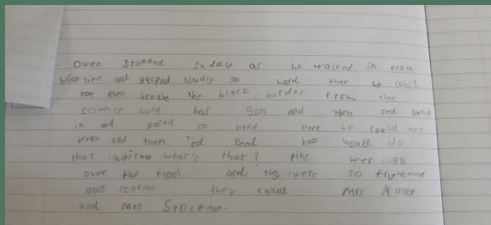 Owen Stopped as he walked in from
and gasped loudly so hard that he
not even breathe the black border from the
science bord has gon and then Ted came
in and gasped so hard that he could not
and then Ted Send who would do
that what's that? pins wer all
over the floor and they were so frightened
and they called Mrs
and Mrs Stockton.